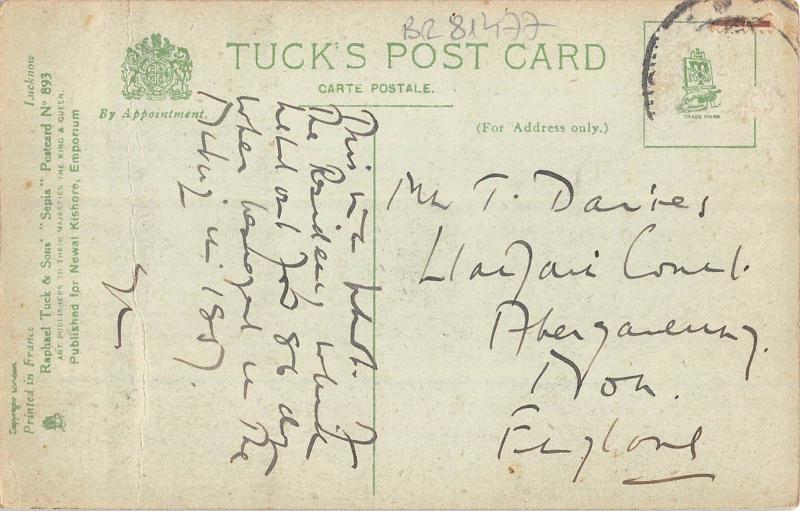 BR 81477
TUCK'S POST CARD
CARTE POSTALE.
By Appointment.
(For Address only.)
TRADE MARK
Copyright London
Printed in France
Lucknow
Raphael Tuck & Sons' "Sepia" Postcard No 893
ART PUBLISHERS TO THEIR MAJESTIES THE KING & QUEEN.
Published for Newal Kishore, Emporium
This is a photo. of
The Residency which
held out for 86 days
when besieged in the
Mutiny in 1857.
Mr T. Davies
Llanfair Court.
Abergavenny.
Mon.
England